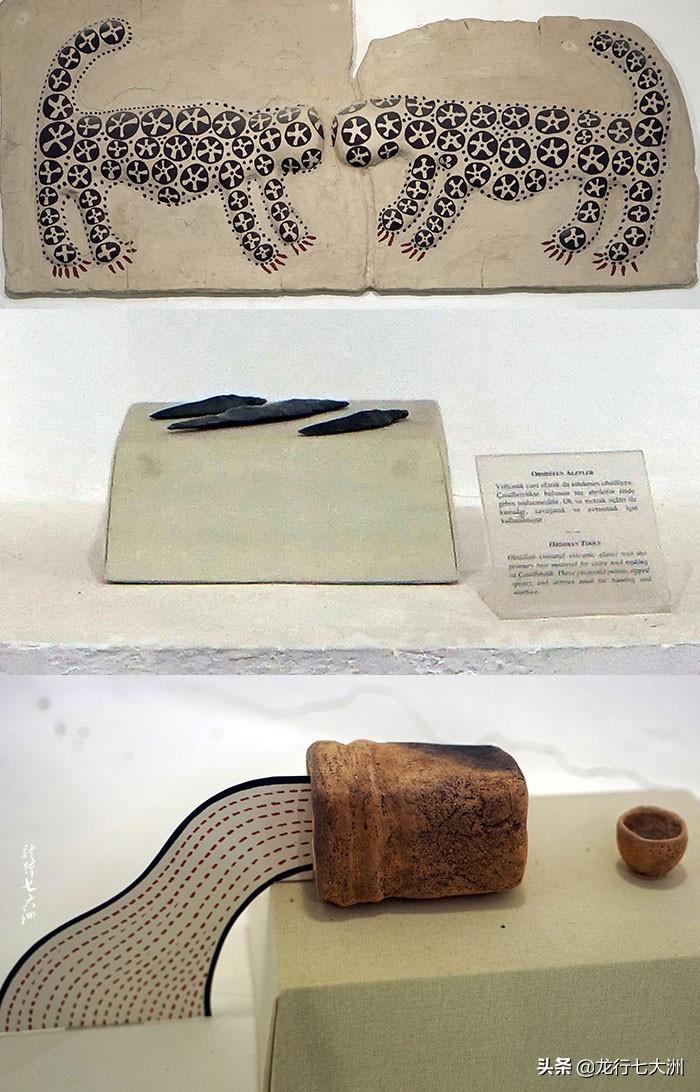 OBSIDIEN ALETLER
Volkanik cam olarak da nitelenen obsidiyen,
Çatalhöyükte bulunan taş aletlerin önde
gelen malzemesidir. Ok ve mızrak uçları ile
kamalar, savaşmak ve avlanmak için
kullanılmıştır
OBSIDIAN TOOLS
Obsidian (natural volcanic glass) was the
primary raw material for stone tool making
at Çatalhöyük. These projectile points, tipped
spears, and arrows used for hunting and
warfare.
龙行七大洲
头条 @龙行七大洲